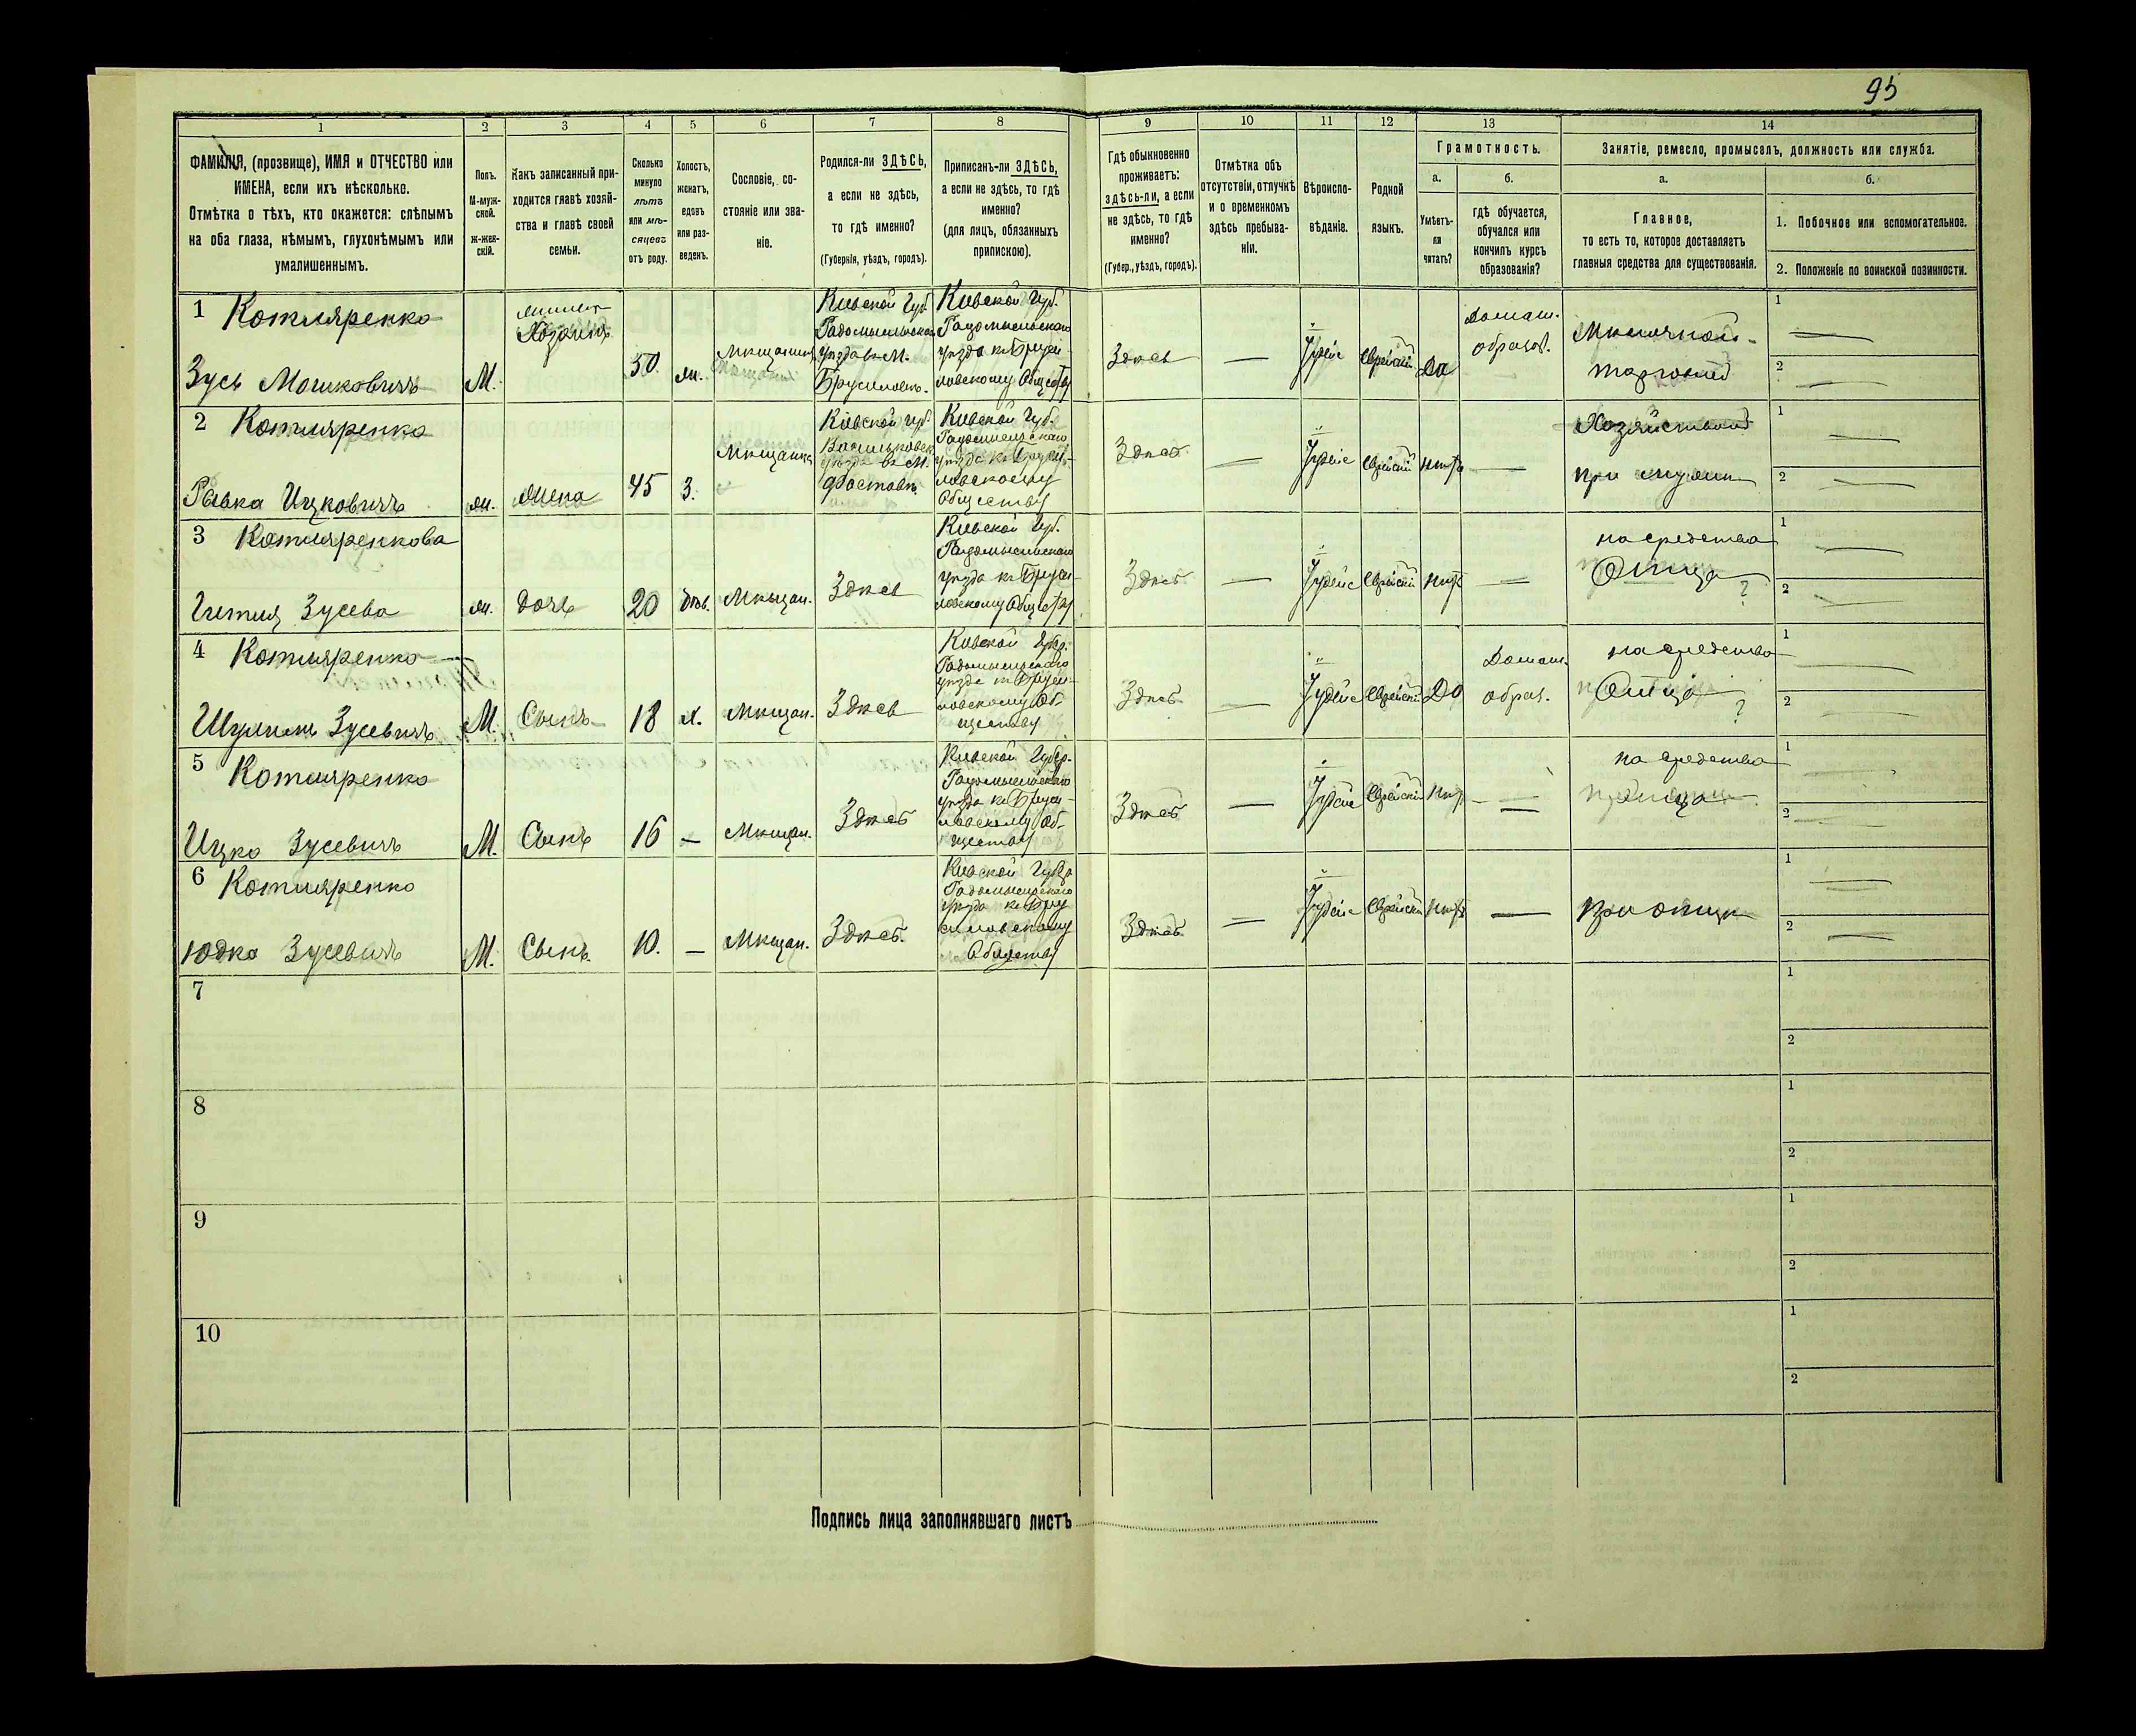 95
1 2 3 4 5 6 7 8 9 10 11 12 13 14
ФАМИЛІЯ, (прозвище), ИМЯ и ОТЧЕСТВО или
ИМЕНА, если ихъ нѣсколько.
Отмѣтка о тѣхъ, кто окажется: слѣпымъ
на оба глаза, нѣмымъ, глухонѣмымъ или
умалишеннымъ.
Полъ.
М-муж-
ской.
ж-жен-
скій.
Какъ записанный при-
ходится главѣ хозяй-
ства и главѣ своей
семьи.
Сколько
минуло
лѣтъ
или мѣ-
сяцевъ
отъ роду.
Холостъ,
женатъ,
вдовъ
или раз-
веденъ.
Сословіе, со-
стояніе или зва-
ніе.
Родился-ли ЗДѢСЬ,
а если не здѣсь,
то гдѣ именно?
(Губернія, уѣздъ, городъ).
Приписанъ-ли ЗДѢСЬ,
а если не здѣсь, то гдѣ
именно?
(для лицъ, обязанныхъ
припискою).
Гдѣ обыкновенно
проживаетъ:
здѣсь-ли, а если
не здѣсь, то гдѣ
именно?
(Губер., уѣздъ, городъ).
Отмѣтка объ
отсутствіи, отлучкѣ
и о временномъ
здѣсь пребыва-
ніи.
Вѣроиспо-
вѣданіе.
Родной
языкъ.
Грамотность.
а.
Умѣетъ-
ли
читать?
б.
гдѣ обучается,
обучался или
кончилъ курсъ
образованія?
Занятіе, ремесло, промыселъ, должность или служба.
а.
Главное,
то есть то, которое доставляетъ
главныя средства для существованія.
б.
1. Побочное или вспомогательное.
2. Положеніе по воинской повинности.
1 Котляренко
Зусь Мошковичъ
М.
Хозяинъ
50.
ж.
Кіевской Губ.
Радомысльскаго
уѣзда въ М.
Брусиловъ.
Кіевской Губ.
Радомысльскаго
уѣзда къ Бруси-
ловскому Общест.
Здѣсь
—
Іудейс
Еврейскій
Да
Домаш.
образов.
торговля
1 —
2 —
2 Котляренко
Рывка Ицковичъ
ж.
Жена
45
З.
Мѣщанка
Кіевской губ.
Васильковск.
уѣзда въ М.
Фастовъ.
Кіевской Губ.
Радомысльскаго
уѣзда къ Бруси-
ловскому
Обществу
Здѣсь
—
Іудейс
Еврейскій
нѣтъ
—
при мужѣ
1 —
2 —
3 Котляренкова
Гитля Зусева
ж.
дочь
20
дѣв.
Мѣщан.
Здѣсь
Кіевской Губ.
Радомысльскаго
уѣзда къ Бруси-
ловскому Общест.
Здѣсь
—
Іудейс
Еврейскій
нѣтъ
—
на средства
Отца
?
1 —
2 —
4 Котляренко
Шулимъ Зусевичъ
М.
Сынъ
18
х.
Мѣщан.
Здѣсь
Кіевской Губер.
Радомысльскаго
уѣзда къ Бруси-
ловскому Об-
ществу
Здѣсь
—
Іудейс
Еврейскій
Да
Домаш.
образ.
на средства
Отца
?
1 —
2 —
5 Котляренко
Ицко Зусевичъ
М.
Сынъ
16
—
Мѣщан.
Здѣсь
Кіевской Губер.
Радомысльскаго
уѣзда къ Бруси-
ловскому Об-
ществу
Здѣсь
—
Іудейс
Еврейскій
нѣтъ
—
на средства
1 —
2 —
6 Котляренко
Юдко Зусевичъ
М.
Сынъ.
10.
—
Мѣщан.
Здѣсь.
Кіевской Губер
Радомысльскаго
уѣзда къ Бру
силовскому
Обществу
Здѣсь
—
Іудейс
Еврейскій
нѣтъ
—
при отцѣ
1 —
2 —
7
1
2
8
1
2
9
1
2
10
1
2
Подпись лица заполнявшаго листъ